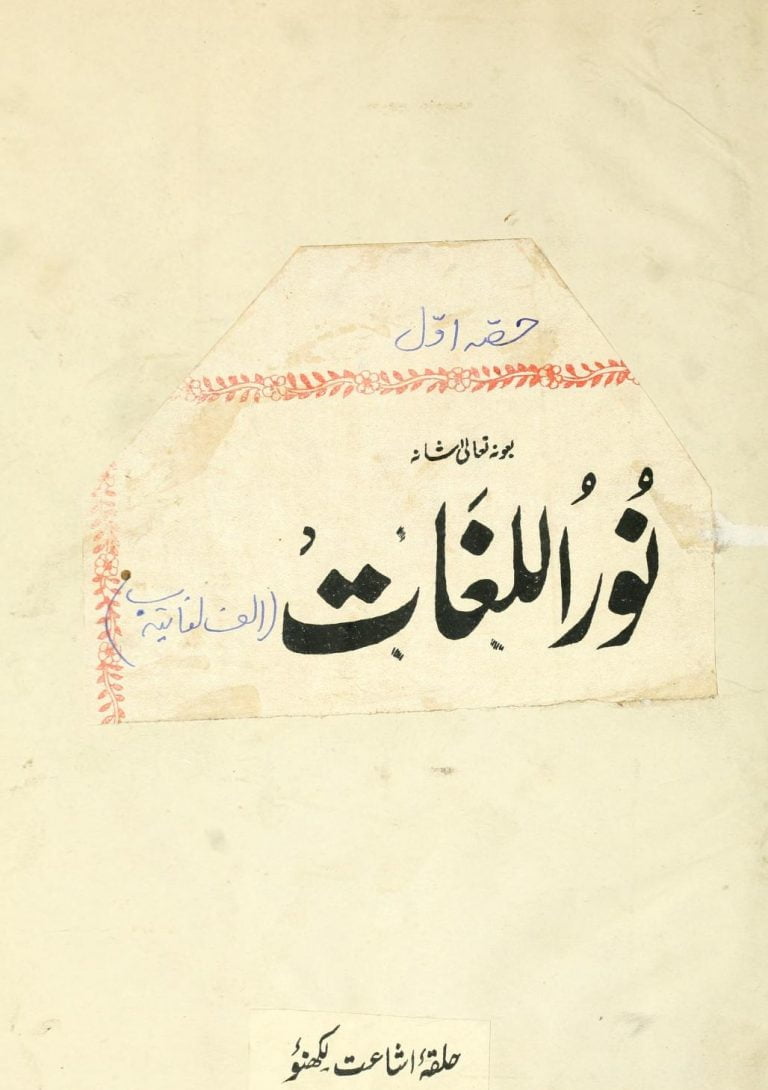 حصہ اوّل
بعونہ تعالیٰ شانہ
نُورُ اللغَاتُ
(الف لغایتہ ب)
حلقۂ اشاعت لکھنؤ